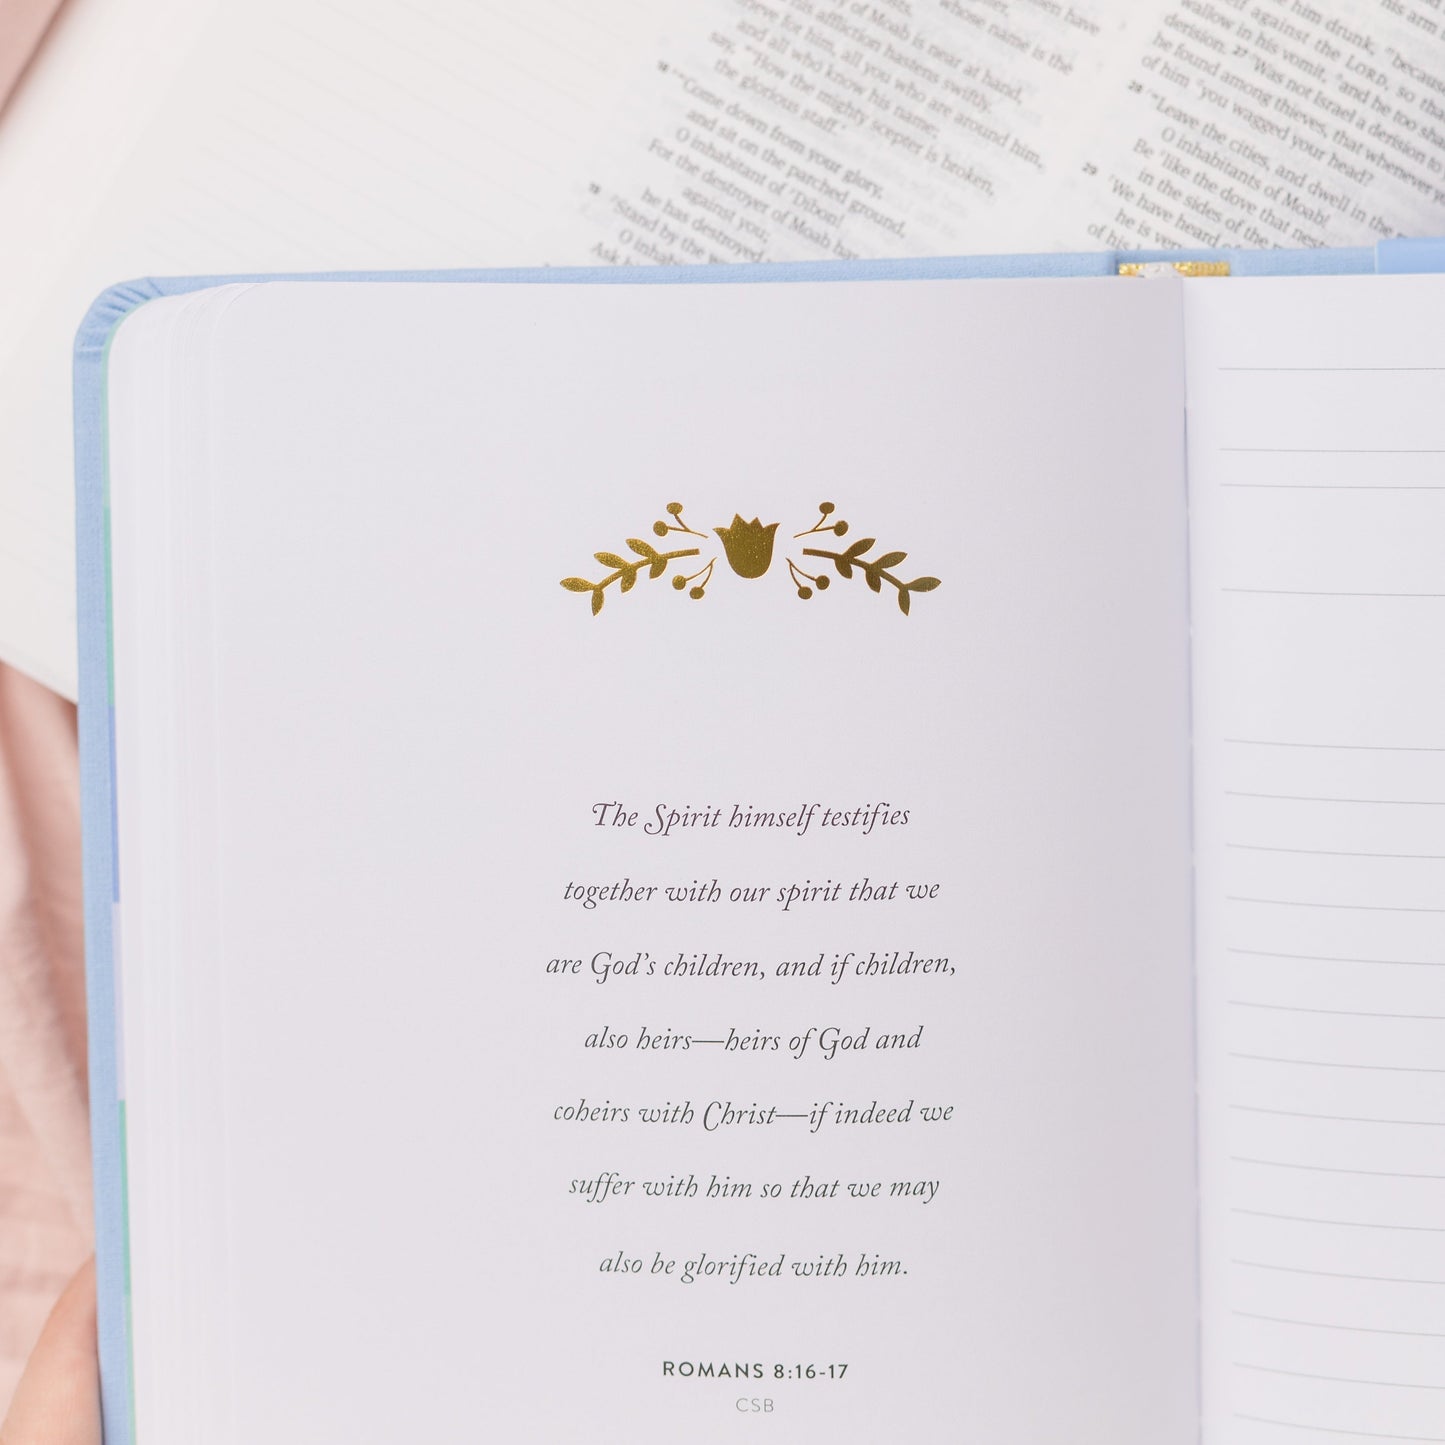 whose name is the
of Moab is near at hand,
his affliction hastens swiftly.
for him, all you who are around him,
and all who know his name;
say, "How the mighty scepter is broken,
the glorious staff.'
18 "Come down from your glory,
and sit on the parched ground,
O inhabitant of Dibon!
For the destroyer of Moab has
against you;
he has destroyed
19 "Stand by the
O inhabitant
Ask
him drunk, because
against the LORD, so that
wallow in his vomit, and he too shall
derision. 27 Was not Israel a derision to
he found among thieves, that whenever
of him you wagged your head?
28 "Leave the cities, and dwell in the
O inhabitants of Moab!
Be like the dove that nests
in the sides of the
29 We have heard of
he is very
of his
The Spirit himself testifies
together with our spirit that we
are God's children, and if children,
also heirs—heirs of God and
coheirs with Christ—if indeed we
suffer with him so that we may
also be glorified with him.
ROMANS 8:16-17
CSB